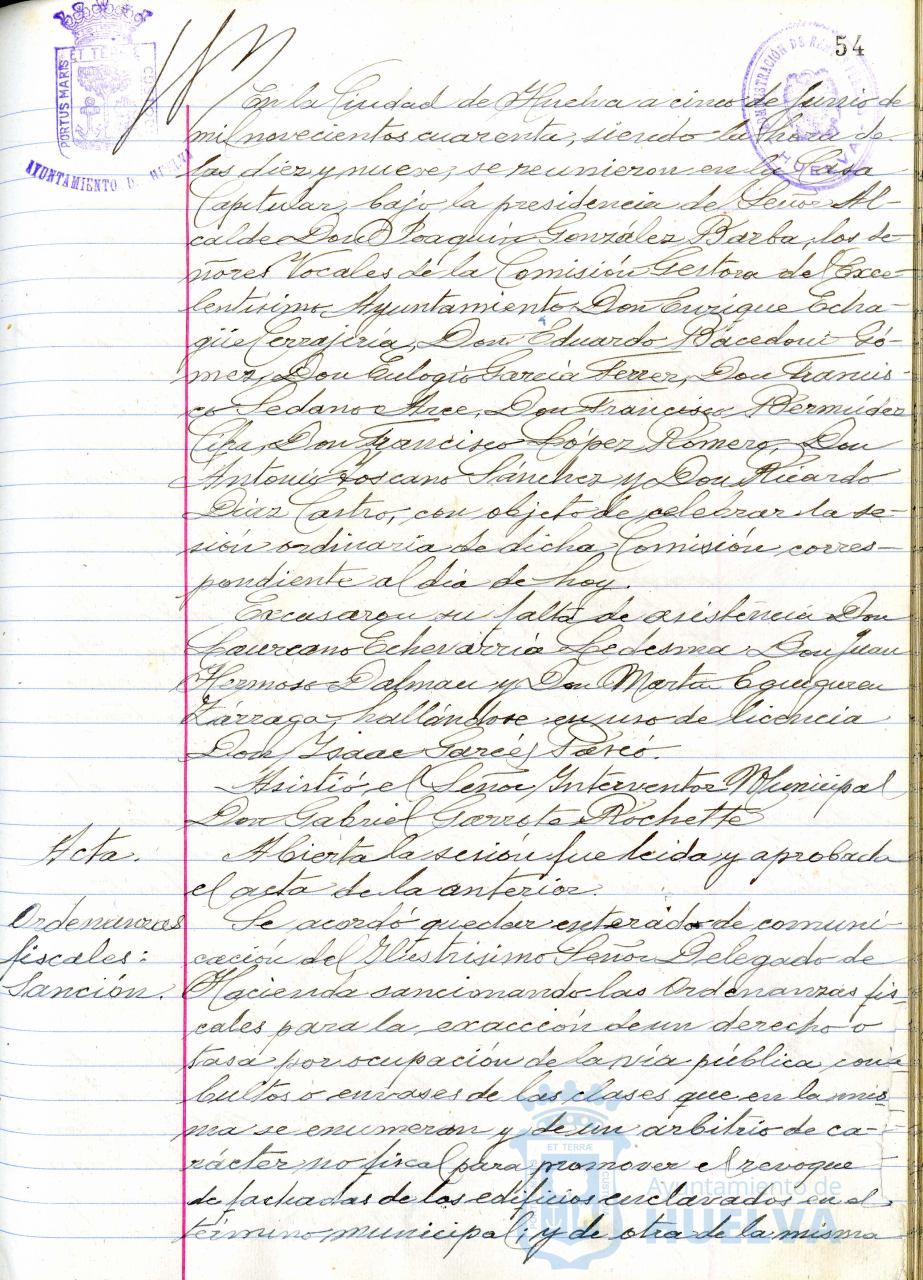 54
PORTUS MARIS
ET TERRÆ
CUSTODIA
AYUNTAMIENTO DE HUELVA
ADMINISTRACIÓN DE
HUELVA
En la Ciudad de Huelva a cinco de Junio de
mil novecientos cuarenta, siendo la hora de
las diez y nueve, se reunieron en la Casa
Capitular, bajo la presidencia de Señor Al-
calde Don Joaquín González Barba, los se-
ñores Vocales de la Comisión Gestora del Exce-
lentísimo Ayuntamiento Don Enrique Echa-
güe Cerrajiria, Don Eduardo Bácedoni Gó-
mez, Don Eulogio García Ferrer, Don Francis-
co Sedano Arce, Don Francisco Bermúdez
Don Francisco López Romero, Don
Antonio Toscano Sánchez y Don Ricardo
Díaz Castro, con objeto de celebrar la se-
sión ordinaria de dicha Comisión, corres-
pondiente al día de hoy.
Excusaron su falta de asistencia Don
Laureano Echevarría Ledesma Don Juan
Hermoso Dalmau y Don Martín Eguiguren
Zárraga, hallándose en uso de licencia
Don Isaac Garcés
Asistió el Señor Interventor Municipal
Don Gabriel Garrote Rochette
Acta.
Abierta la sesión fue leida y aprobada
el acta de la anterior.
Ordenanzas
fiscales:
Sanción.
Se acordó quedar enterado de comuni-
cación del Ilustrisimo Señor Delegado de
Hacienda sancionando las Ordenanzas fis-
cales para la exacción de un derecho o
tasa por ocupación de la vía pública con
bultos o envases de las clases que en la mis-
ma se enumeran y de un arbitrio de ca-
rácter no fiscal para promover el revoque
de fachadas de los edificios enclavados en el
término municipal; y de otra de la misma
ET TERRÆ
Ayuntamiento de
HUELVA